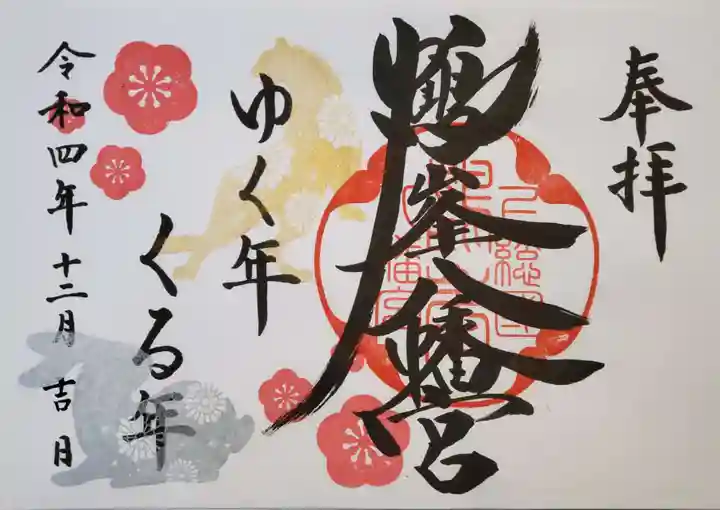 奉拝
鶴峯八幡宮
上總国
ゆく年
くる年
令和四年十二月吉日